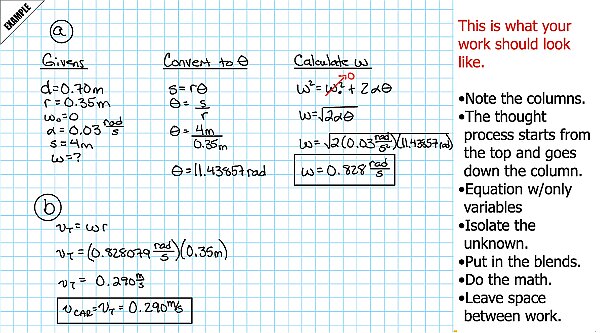 EXAMPLE
a
Givens
d = 0.70m
r = 0.35m
ω₀ = 0
α = 0.03 rad/s
s = 4m
ω = ?
Convert to θ
s = rθ
θ = s/r
θ = 4m/0.35m
θ = 11.43857 rad
Calculate ω
ω² = ω₀² + 2αθ
0
ω = √2αθ
ω = √2(0.03 rad/s²)(11.43857 rad)
ω = 0.828 rad/s
b
v_T = ωr
v_T = (0.828079 rad/s)(0.35m)
v_T = 0.290 m/s
v_CAR = v_T = 0.290 m/s
This is what your
work should look
like.
•Note the columns.
•The thought
process starts from
the top and goes
down the column.
•Equation w/only
variables
•Isolate the
unknown.
•Put in the blends.
•Do the math.
•Leave space
between work.